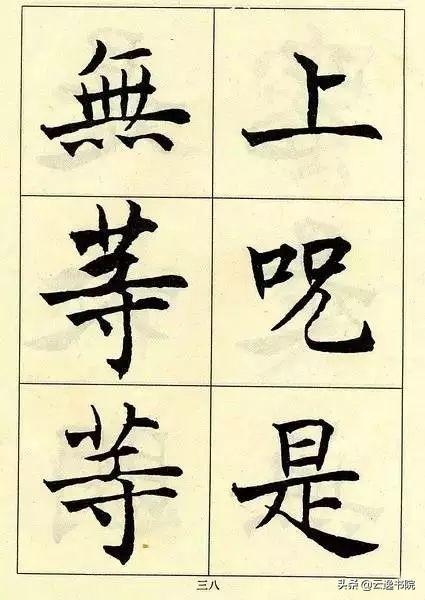 上呪是
無等等
三八
头条 @云逸书院